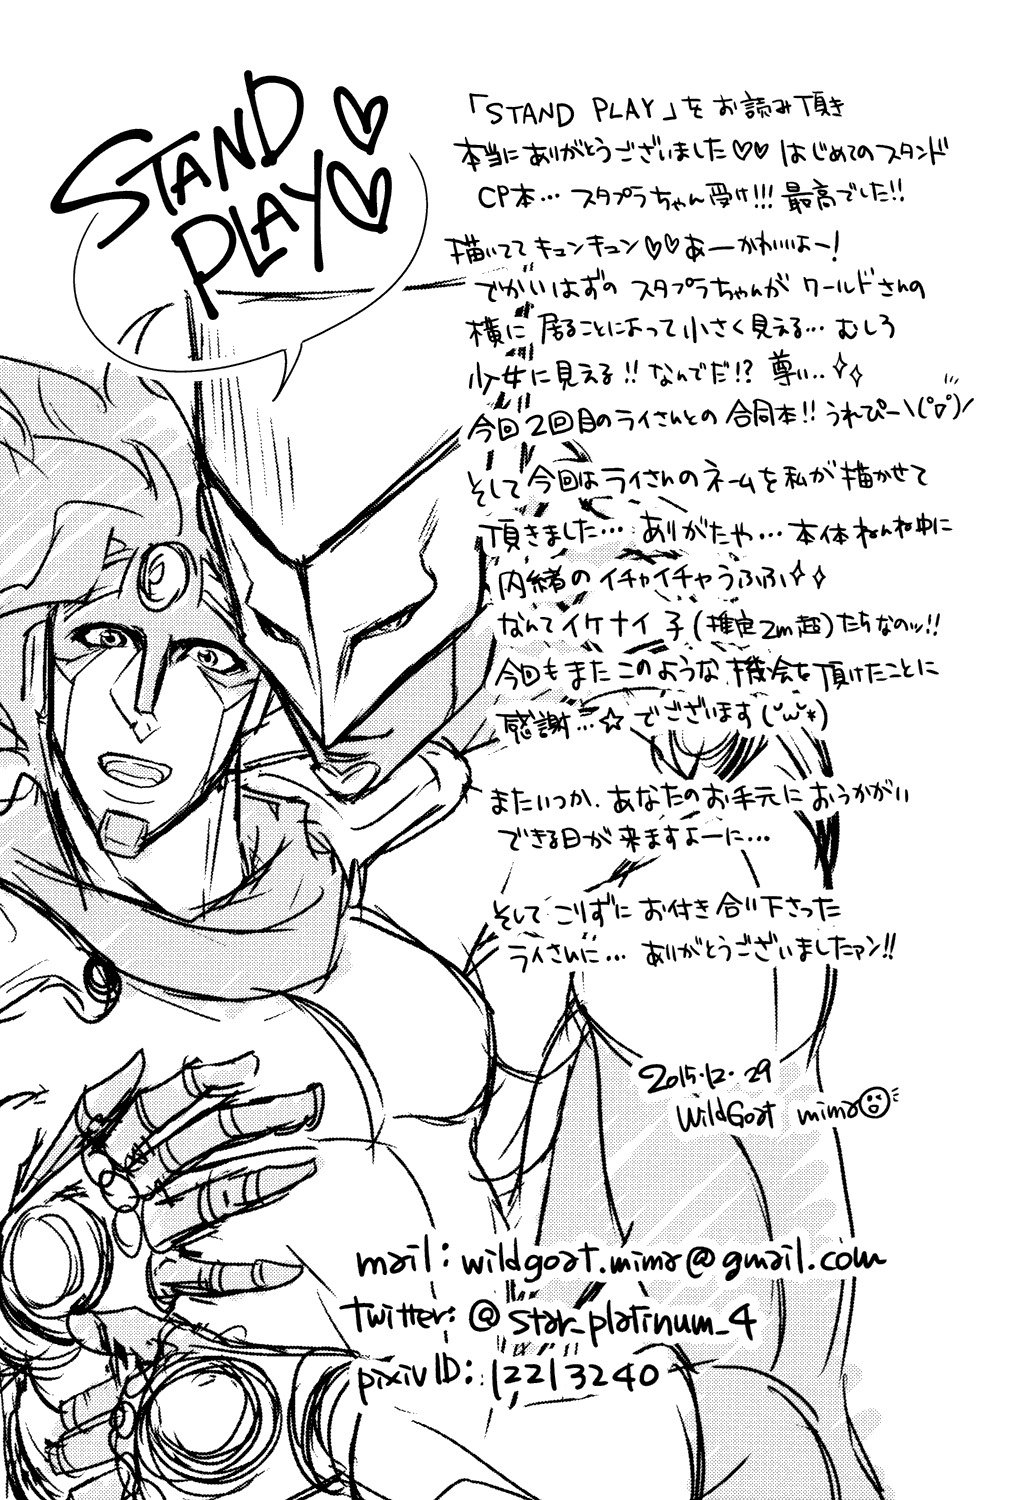 STAND
PLAY
「STAND PLAY」をお読み頂き
本当にありがとうございました♡♡ はじめてのスタンド
CP本… スタプラちゃん受け!!! 最高でした!!
描いてて キュンキュン♡♡ あーかわいいよー!
でかいはずの スタプラちゃんが ワールドさんの
横に 居ることによって 小さく見える… むしろ
少女に見える!! なんでだ!? 尊い‥✧✧
今回2回目のライさんとの 合同本!! うれぴー\(°▽°)/
そして今回はライさんのネームを私が描かせて
頂きました… ありがたや… 本体ねんね中に
内緒の イチャイチャうふふ✧✧
なんてイケナイ子(推定2m超)たちなのッ!!
今回もまた このような 機会を頂けたことに
感謝…☆ でございます(˘ω˘*)
またいつか、あなたのお手元に おうかがい
できる日が 来ますよーに…
そして こりずに お付き合い下さった
ライさんに… ありがとうございましたァン!!
2015.12.29
WildGoat mima
mail: wildgoat.mima@gmail.com
twitter: @star_platinum_4
pixivID: 12213240